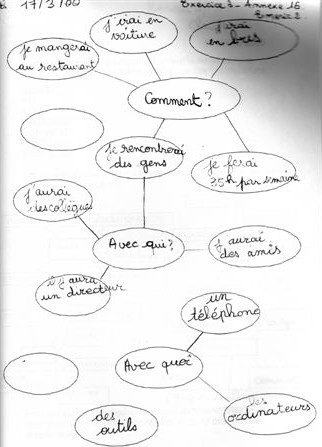 17/3/00
Exercice 3 - Annexe 1E
j'irai en
voiture
j'irai
en bus
je mangerai
au restaurant
Comment ?
je rencontrerai
des gens
je ferai
35h par semaine
j'aurai
des collègues
Avec qui ?
j'aurai
des amis
il y aura
un directeur
un
téléphone
Avec quoi
des
ordinateurs
des
outils